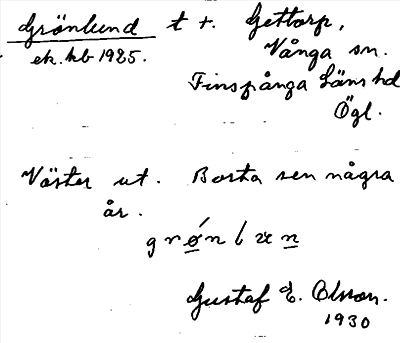 Grönlund t. t. Gettorp,
ek. kb 1925. Vånga sn.
Finspånga läns hd
Ögl.
Väster ut. Borta sen några
år.
Gustaf E. Olsson.
1930